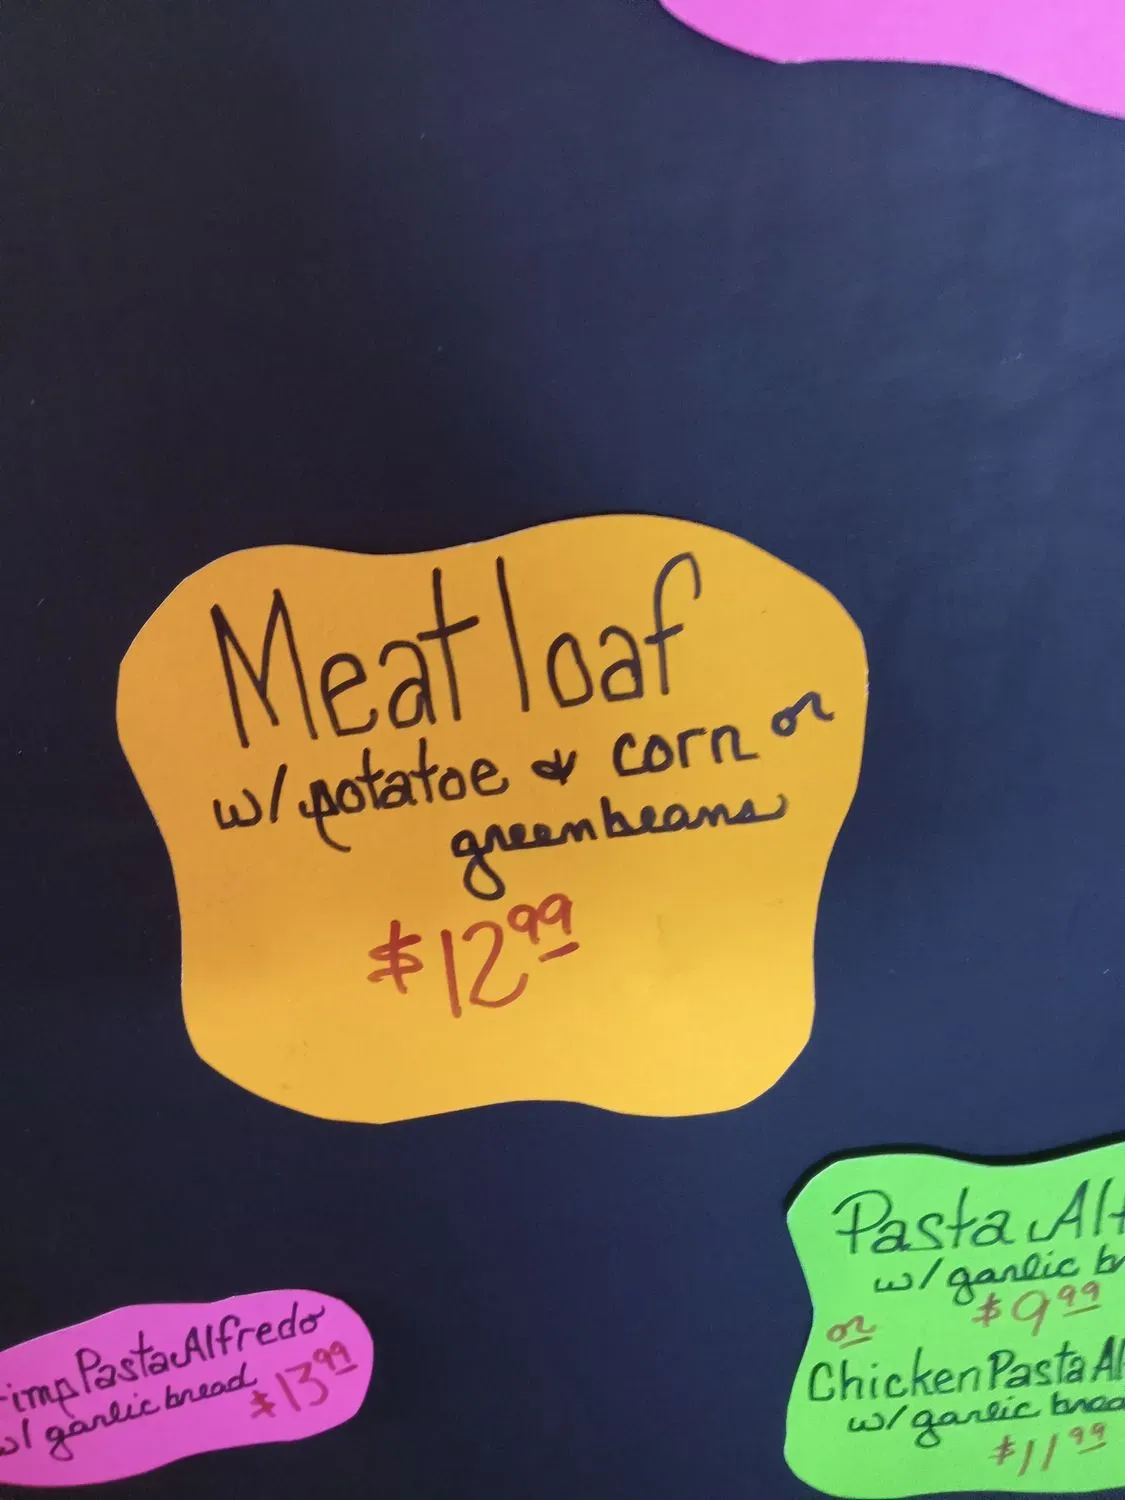 Meat loaf
w/ potatoe & corn or
greenbeans
$12.99
Pasta Alf
w/ garlic br
$9.99
or
Chicken Pasta Al
w/ garlic brea
$11.99
imp Pasta Alfredo
w/ garlic bread $13.99